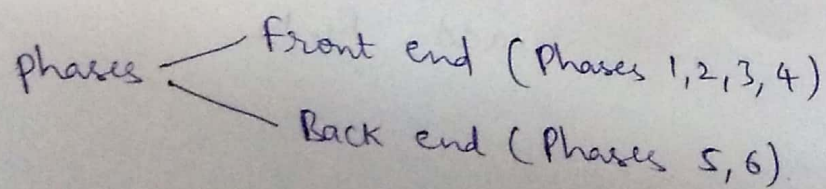 Phases
Front end (Phases 1,2,3,4)
Back end (Phases 5,6)